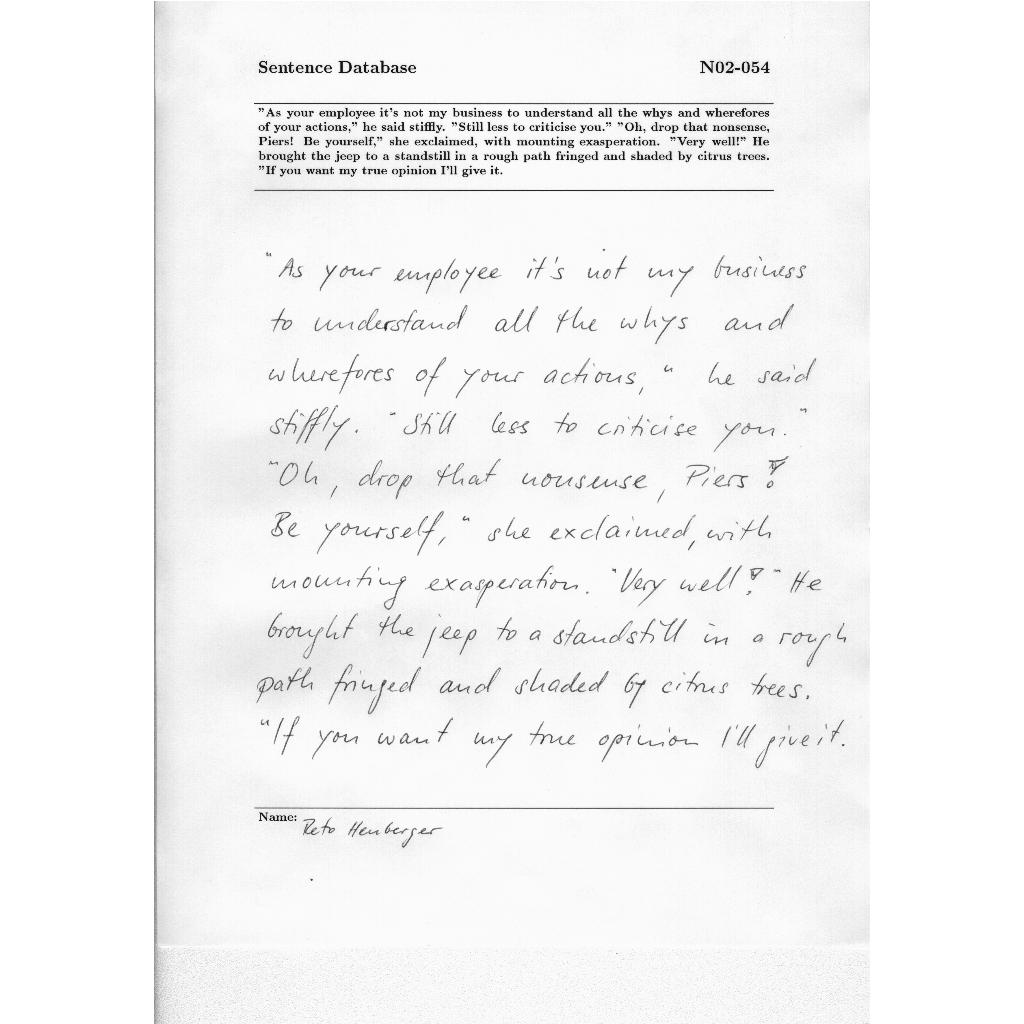 Sentence Database N02-054
"As your employee it's not my business to understand all the whys and wherefores
of your actions," he said stiffly. "Still less to criticise you." "Oh, drop that nonsense,
Piers! Be yourself," she exclaimed, with mounting exasperation. "Very well!" He
brought the jeep to a standstill in a rough path fringed and shaded by citrus trees.
"If you want my true opinion I'll give it.
"As your employee it's not my business
to understand all the whys and
wherefores of your actions," he said
stiffly. "Still less to criticise you."
"Oh, drop that nonsense, Piers!
Be yourself," she exclaimed, with
mounting exasperation. "Very well!" He
brought the jeep to a standstill in a rough
path fringed and shaded by citrus trees.
"If you want my true opinion I'll give it.
Name: Reto Heuberger